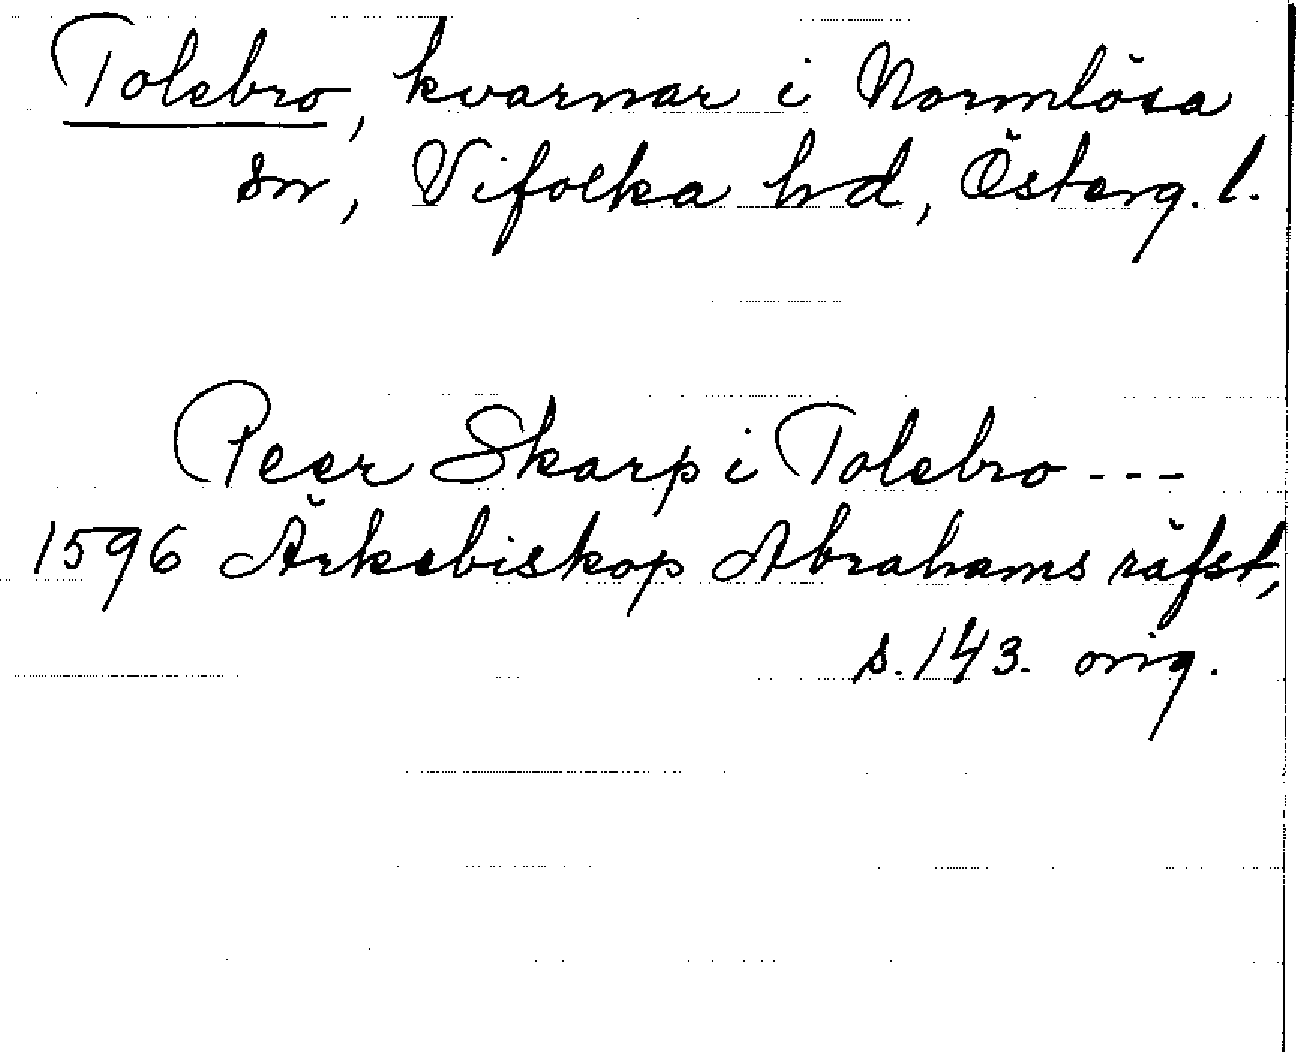 Tolebro, kvarnar i Normlösa
sn, Vifolka hrd, Österg. l.
Peer Skarp i Tolebro ---
1596 Ärkebiskop Abrahams räfst,
s. 143. orig.